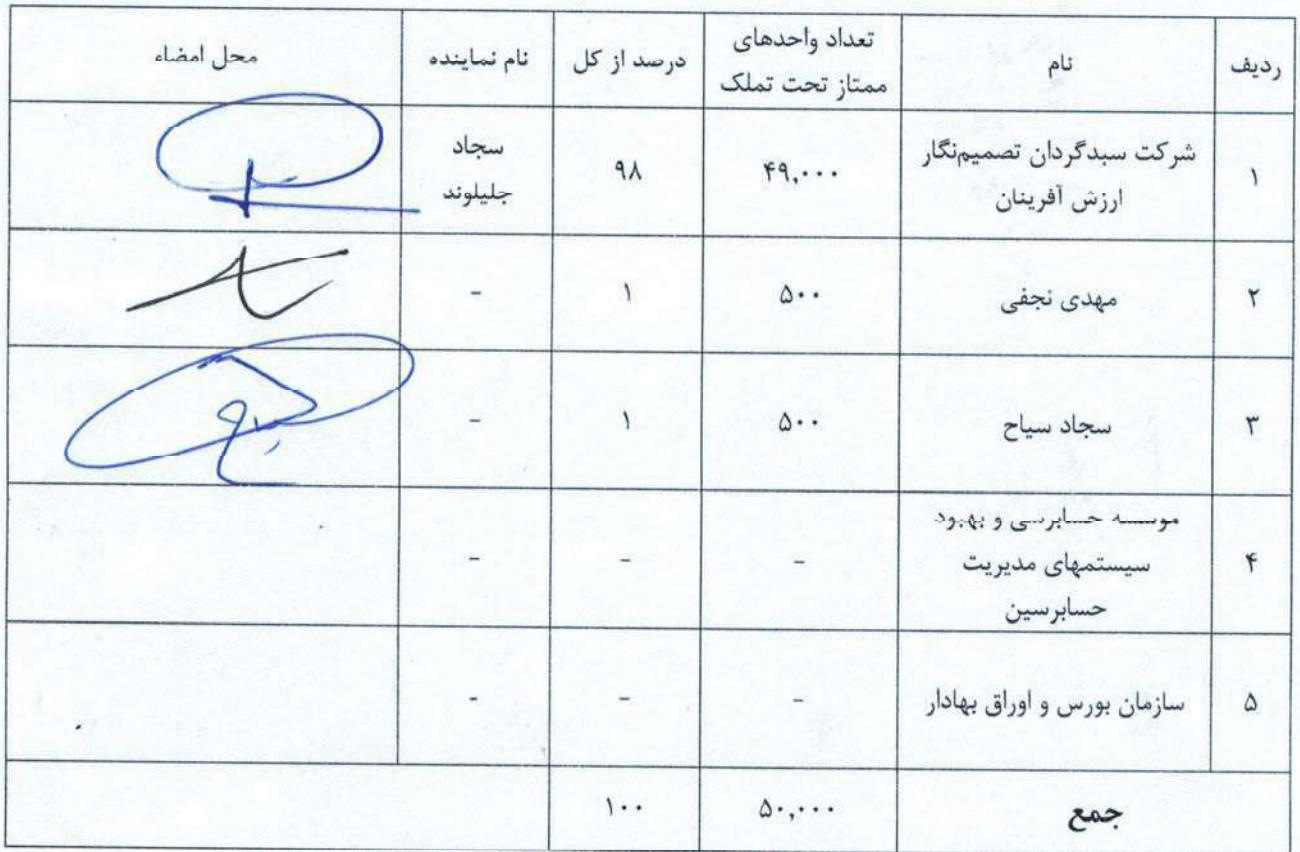 ردیف
نام
تعداد واحدهای
ممتاز تحت تملک
درصد از کل
نام نماینده
محل امضاء
۱
شرکت سبدگردان تصمیم‌نگار
ارزش آفرینان
۴۹,۰۰۰
۹۸
سجاد
جلیلوند
۲
مهدی نجفی
۵۰۰
۱
-
۳
سجاد سیاح
۵۰۰
۱
-
۴
موسسه حسابرسی و بهبود
سیستمهای مدیریت
حسابرسین
-
-
-
۵
سازمان بورس و اوراق بهادار
-
-
-
جمع
۵۰,۰۰۰
۱۰۰